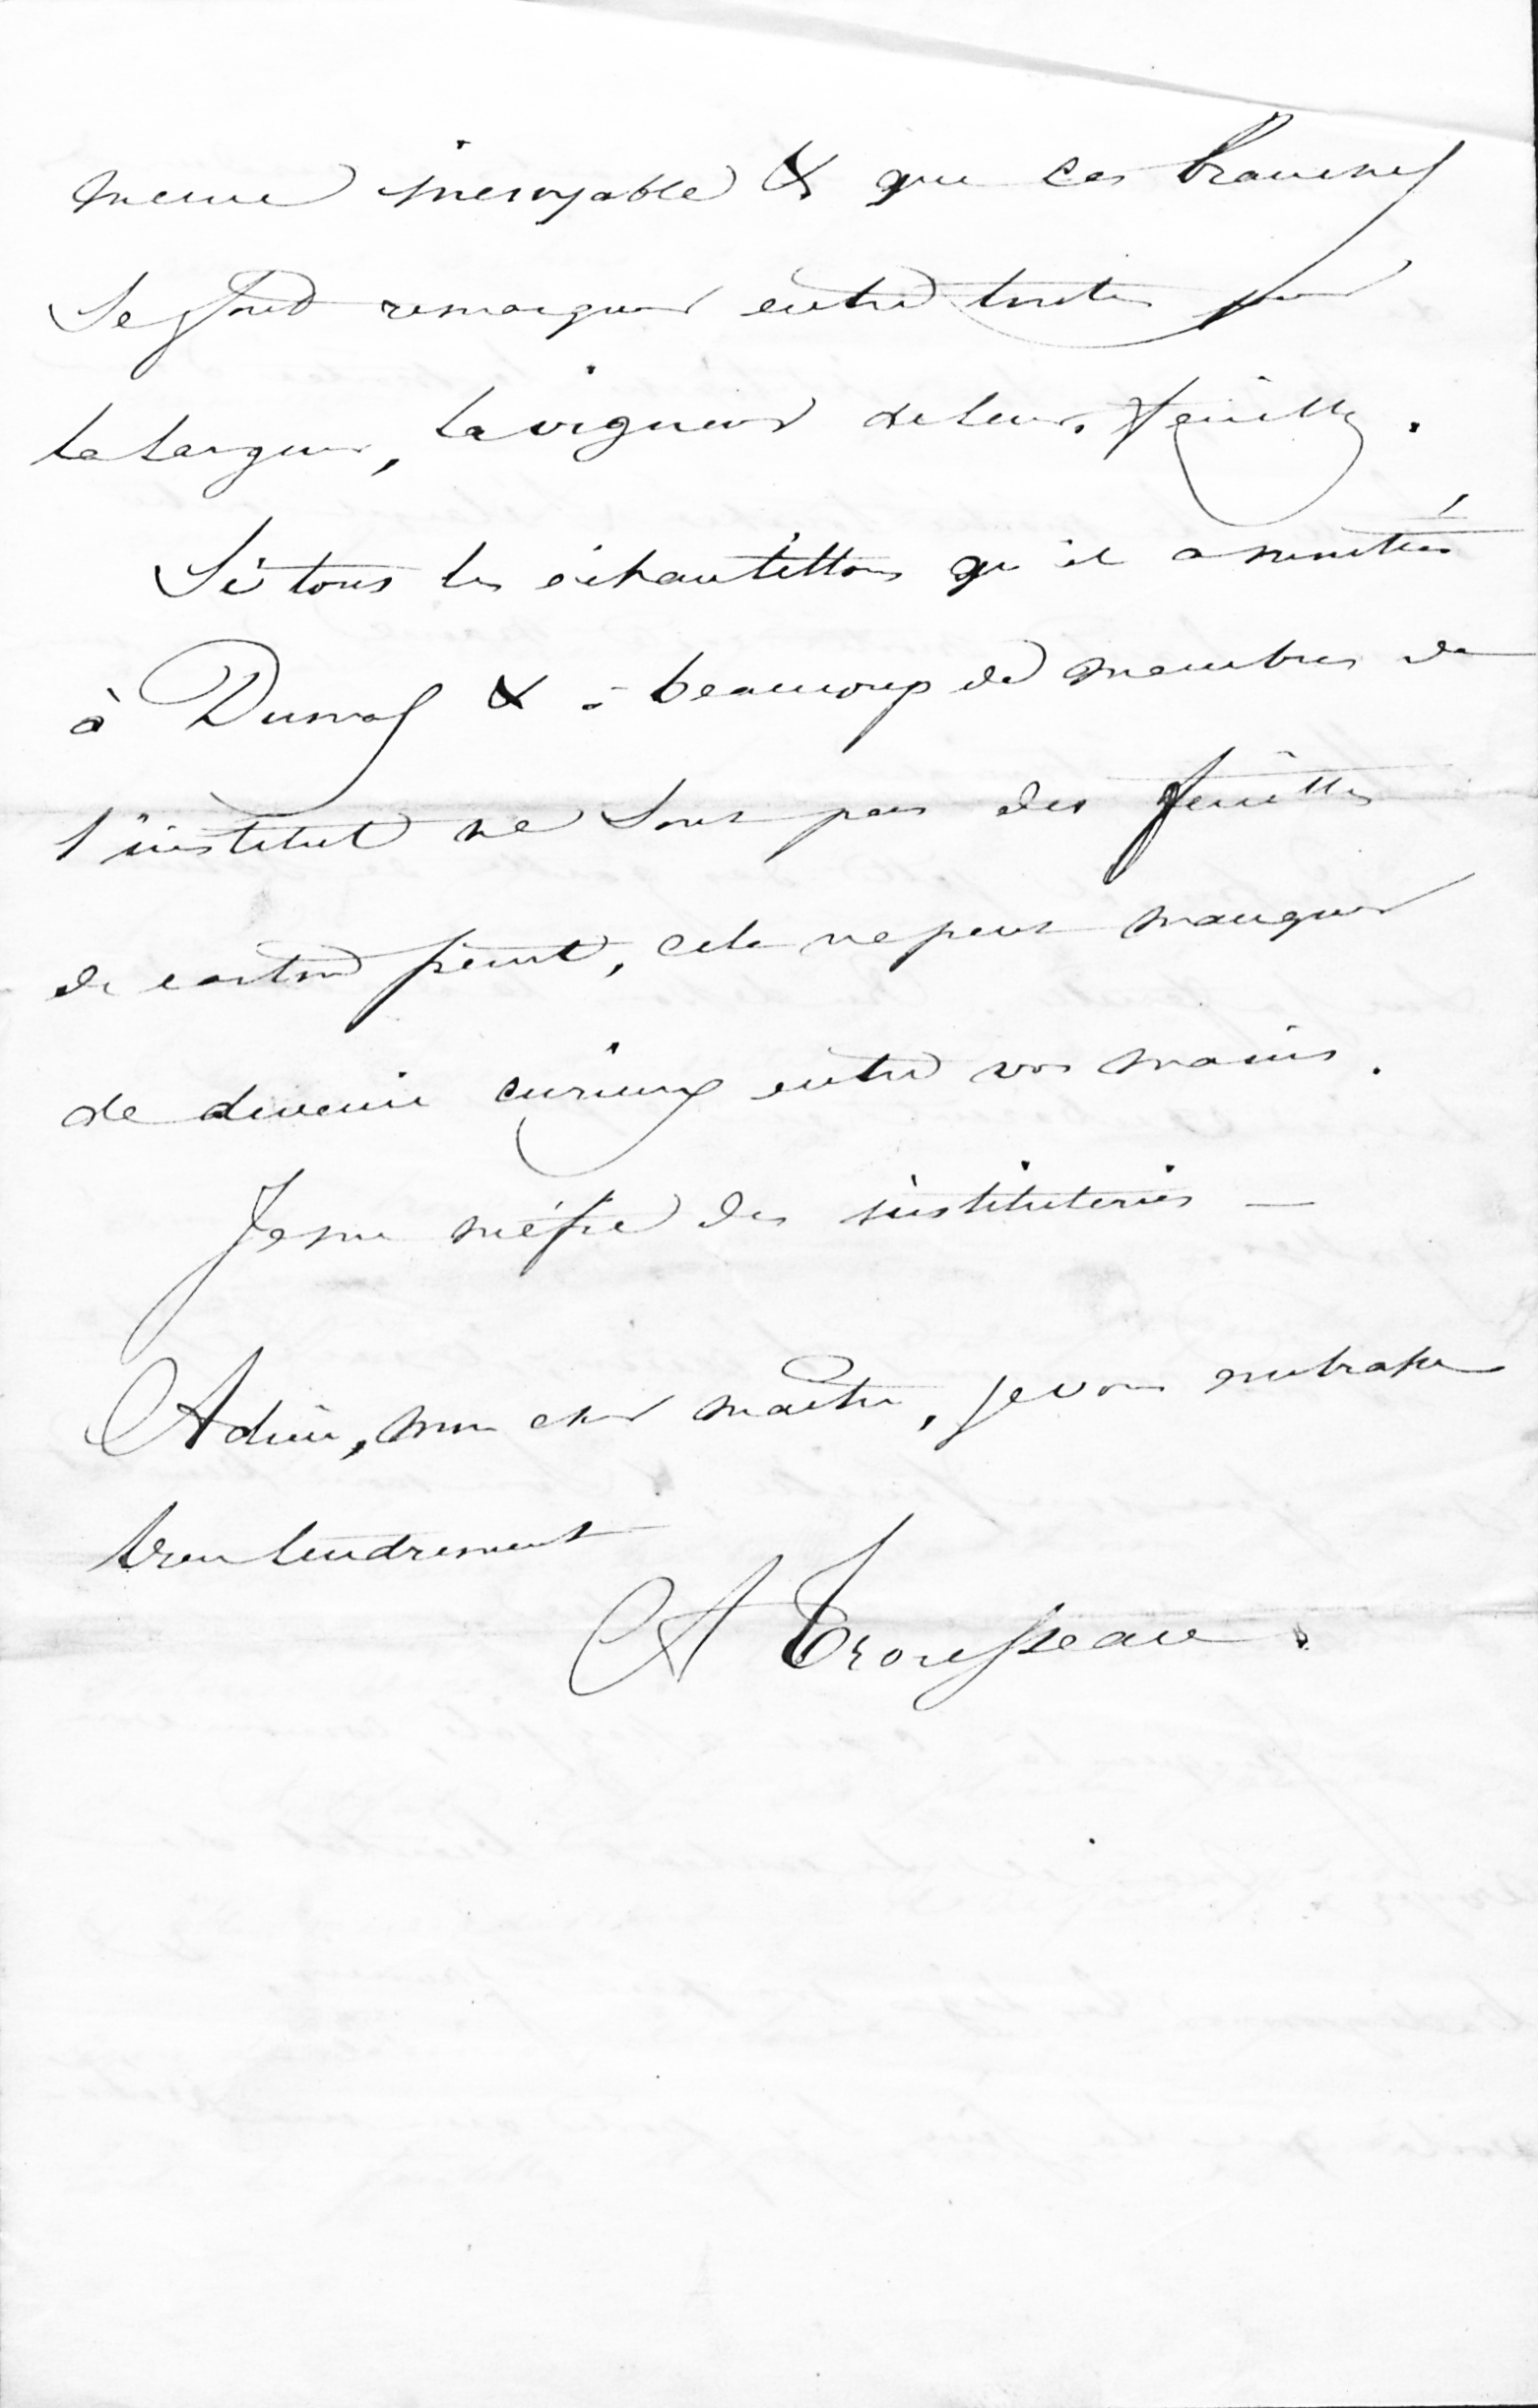 meme incroyable & que ces branches
se font remarquer entre toutes par
la largeur, la vigueur de leurs feuilles.
Si tous les échantillons qu'il a montrés
à Dumas & à beaucoup de membres de
l'institut ne sont pas des feuilles
de carton peint, cela ne peut manquer
de devenir curieux entre vos mains.
Je me méfie des instituteries —
Adieu, mon cher maître, je vous embrasse
bien tendrement
A Trousseau.